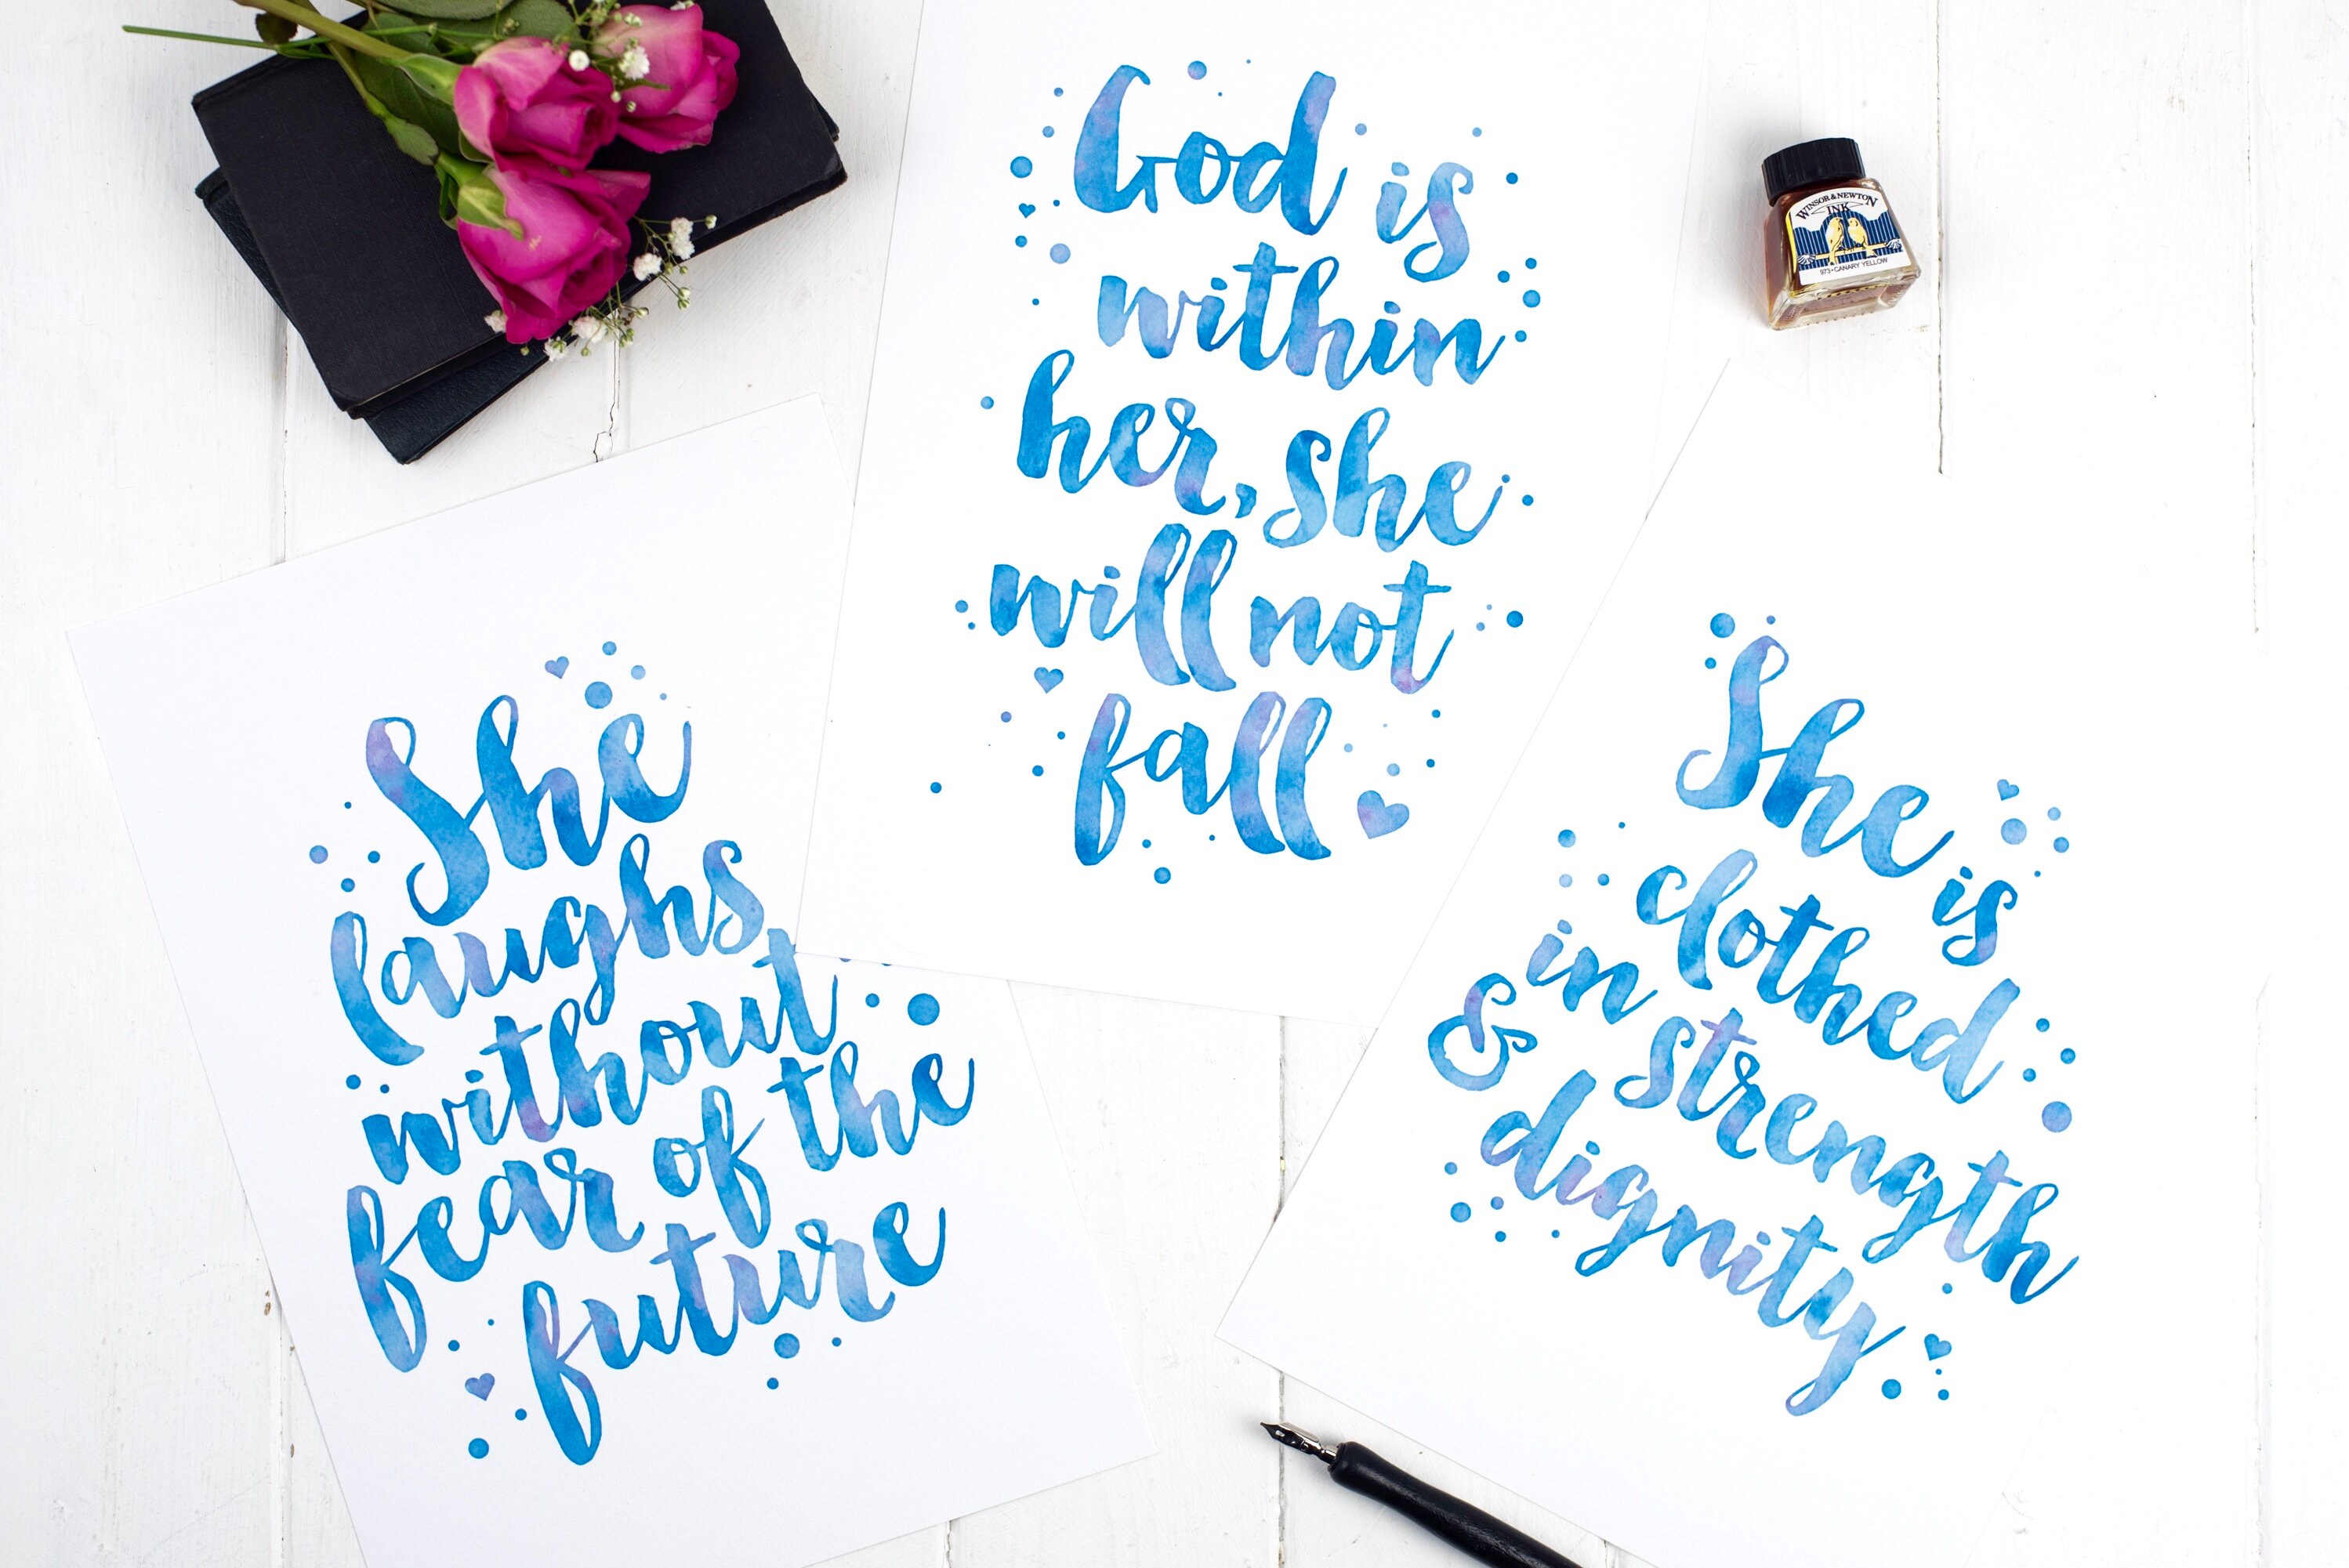 God is
within
her, she
will not
fall
WINSOR & NEWTON
INK
973 • CANARY YELLOW
She
laughs
without
fear of the
future
She is
clothed
in strength
& dignity